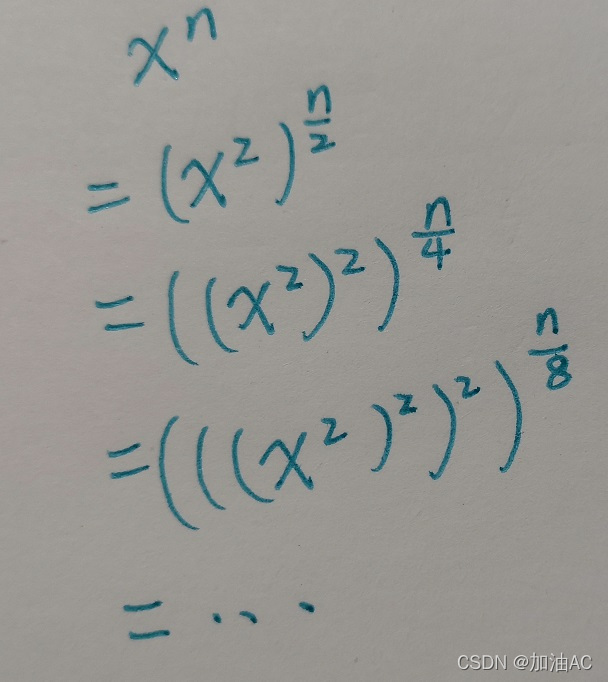 xⁿ
= (x²)^(n/2)
= ((x²)²)^(n/4)
= (((x²)²)²)^(n/8)
= ...
CSDN @加油AC